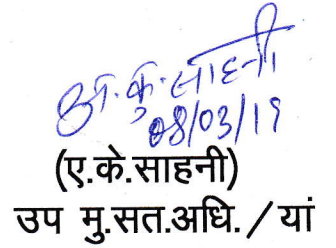 अ.कु.साहनी
08/03/19
(ए.के.साहनी)
उप मु.सत.अधि./यां